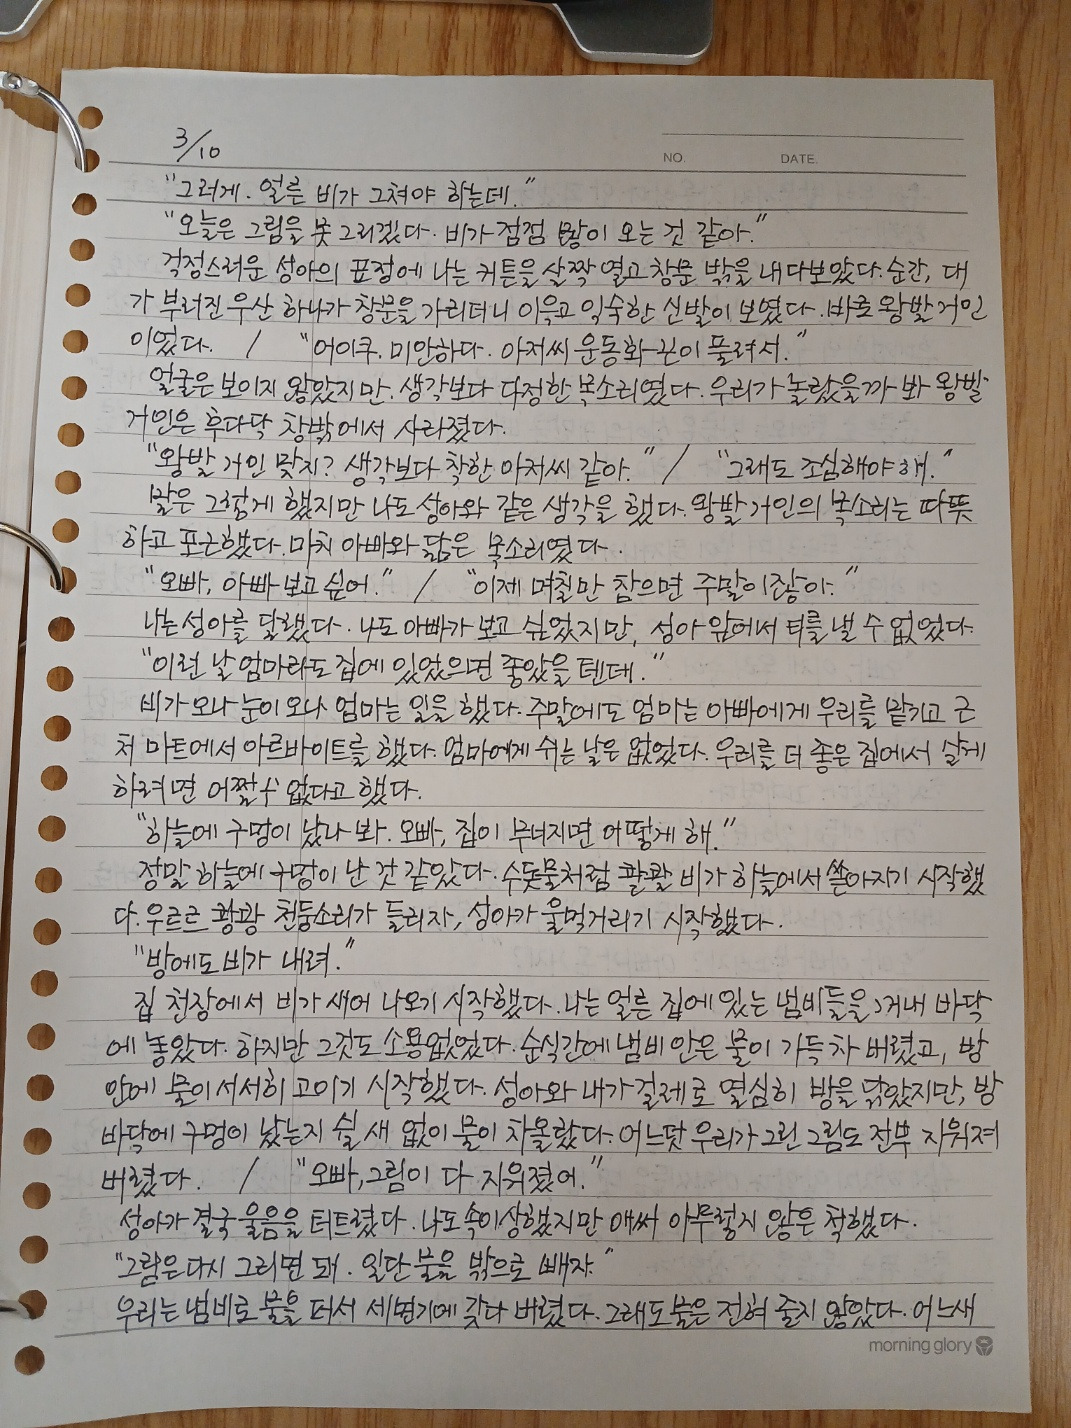 3/10
NO. DATE.
"그러게. 얼른 비가 그쳐야 하는데."
"오늘은 그림을 못 그리겠다. 비가 점점 많이 오는 것 같아."
걱정스러운 성아의 표정에 나는 커튼을 살짝 열고 창문 밖을 내다보았다. 순간, 대
가 부러진 우산 하나가 창문을 가리더니 이윽고 익숙한 신발이 보였다. 바로 왕발 거인
이었다. / "어이쿠, 미안하다. 아저씨 운동화 끈이 풀려서."
얼굴은 보이지 않았지만. 생각보다 다정한 목소리였다. 우리가 놀랐을까 봐 왕발
거인은 후다닥 창밖에서 사라졌다.
"왕발 거인 맞지? 생각보다 착한 아저씨 같아." / "그래도 조심해야 해."
말은 그렇게 했지만 나도 성아와 같은 생각을 했다. 왕발 거인의 목소리는 따뜻
하고 포근했다. 마치 아빠와 닮은 목소리였다.
"오빠, 아빠 보고 싶어." / "이제 며칠만 참으면 주말이잖아."
나는 성아를 달랬다. 나도 아빠가 보고 싶었지만, 성아 앞에서 티를 낼 수 없었다.
"이런 날 엄마라도 집에 있었으면 좋았을 텐데."
비가 오나 눈이 오나 엄마는 일을 했다. 주말에도 엄마는 아빠에게 우리를 맡기고 근
처 마트에서 아르바이트를 했다. 엄마에게 쉬는 날은 없었다. 우리를 더 좋은 집에서 살게
하려면 어쩔 수 없다고 했다.
"하늘에 구멍이 났나 봐. 오빠, 집이 무너지면 어떻게 해."
정말 하늘에 구멍이 난 것 같았다. 수돗물처럼 콸콸 비가 하늘에서 쏟아지기 시작했
다. 우르르 쾅쾅 천둥소리가 들리자, 성아가 울먹거리기 시작했다.
"방에도 비가 내려."
집 천장에서 비가 새어 나오기 시작했다. 나는 얼른 집에 있는 냄비들을 꺼내 바닥
에 놓았다. 하지만 그것도 소용없었다. 순식간에 냄비 안은 물이 가득 차 버렸고, 방
안에 물이 서서히 고이기 시작했다. 성아와 내가 걸레로 열심히 방을 닦았지만, 방
바닥에 구멍이 났는지 쉴 새 없이 물이 차올랐다. 어느덧 우리가 그린 그림도 전부 지워져
버렸다. / "오빠, 그림이 다 지워졌어."
성아가 결국 울음을 터트렸다. 나도 속이상했지만 애써 아무렇지 않은 척했다.
"그림은 다시 그리면 돼. 일단 물을 밖으로 빼자."
우리는 냄비로 물을 퍼서 세면기에 갖다 버렸다. 그래도 물은 전혀 줄지 않았다. 어느새
morning glory